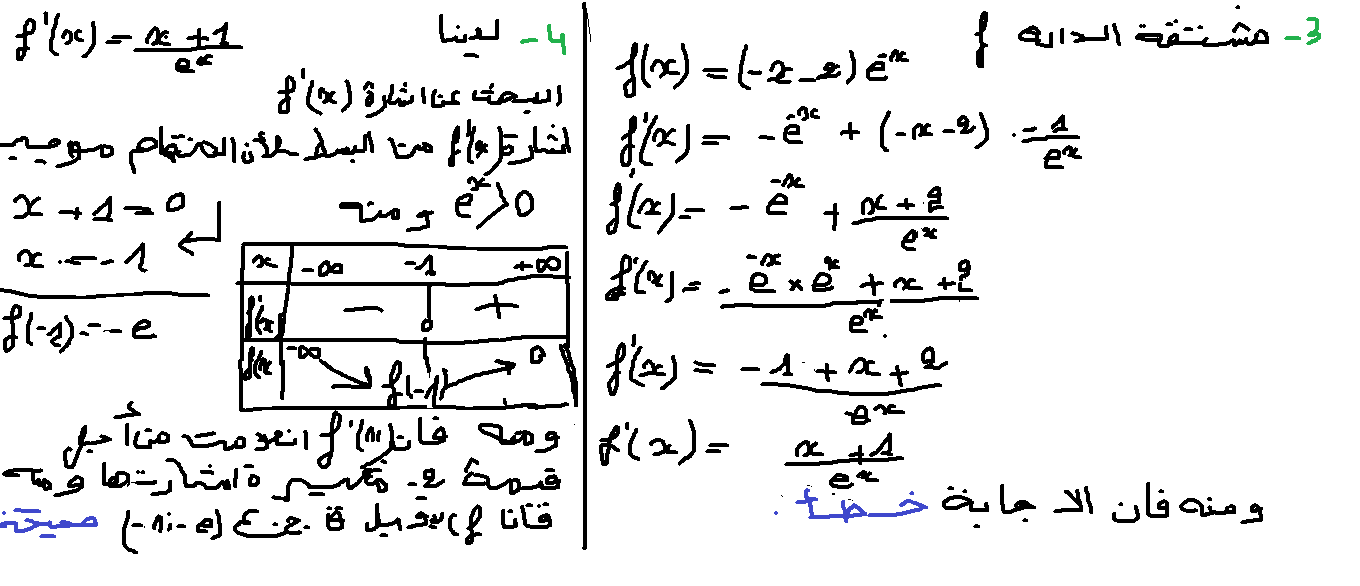 3- مشتقة الدالة f
f(x) = (-x-2) e^-x
f'(x) = -e^-x + (-x-2) · -1/e^x
f'(x) = -e^-x + x+2/e^x
f'(x) = -e^-x × e^x + x+2/e^x
f'(x) = -1+x+2/e^x
f'(x) = x+1/e^x
ومنه فان الاجابة خطأ.
4- لدينا f'(x) = x+1/e^x
البحث عن اشارة f'(x)
اشارة f'(x) من البسط لأن المقام موجب
e^x > 0 ومنه x+1=0
x = -1
f(-1) = -e
x -∞ -1 +∞
f'(x) - 0 +
f(x) -∞ f(-1) 0
ومنه فان f'(x) انعدمت من أجل
قيمة اشارتها ومنه
فان f (-1; -e) صحيحة